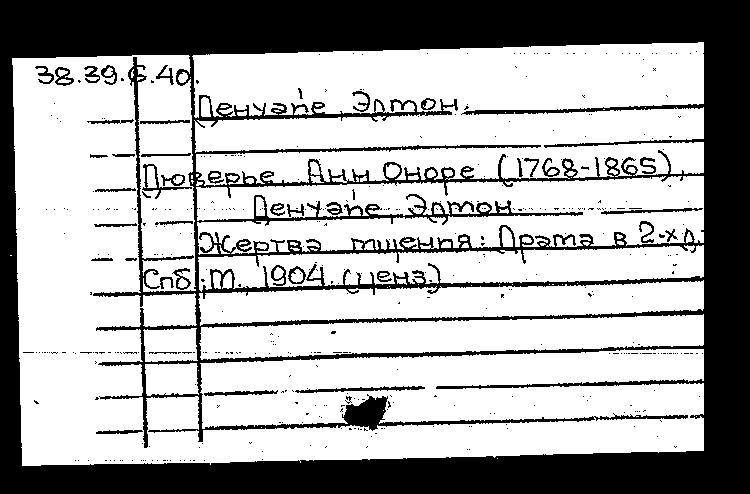 38.39.6.40.
Денуапе, Эдтон.
Дюверье, Анн Оноре (1768-1865),
Денуапе, Эдтон.
Жертва тщения: Драма в 2-х д.
Спб.; М., 1904. (ценз.)